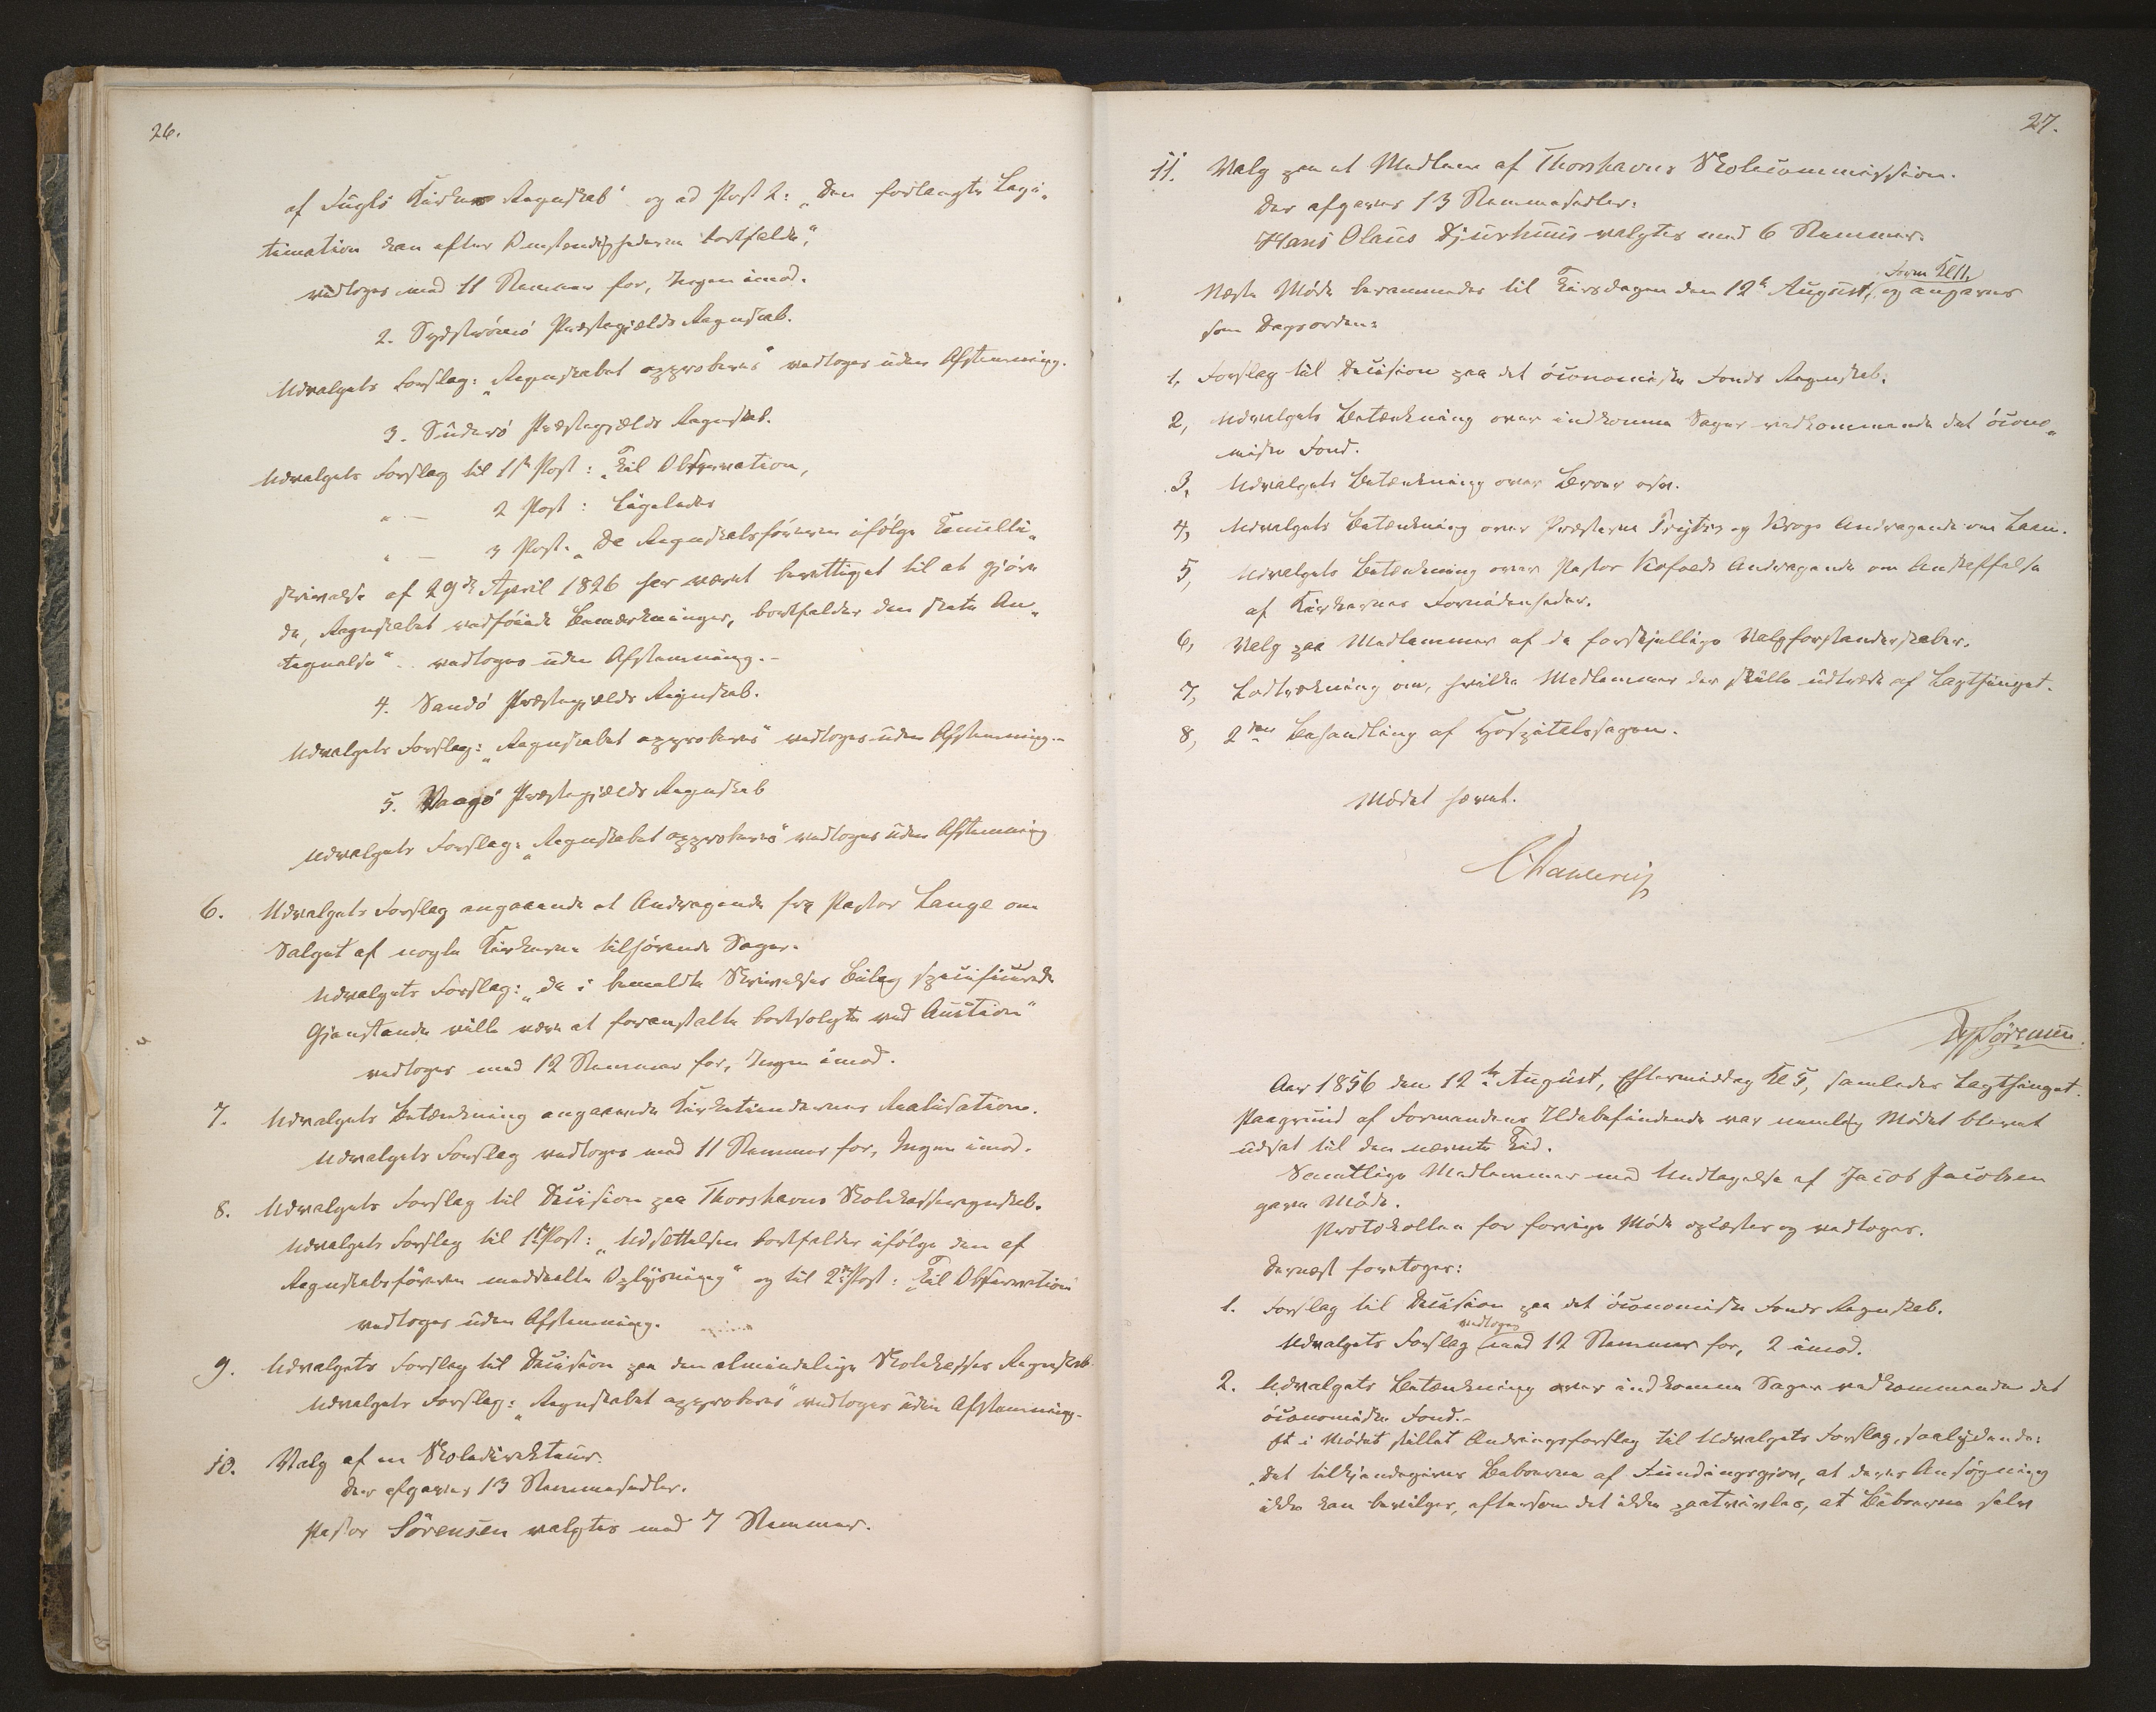 26.
af Fuglø Kirkes Regnskab" og ad Post 2: "Den forlangte Legi-
timation kan efter Omstændighederne bortfalde",
vedtoges med 11 Stemmer for, Ingen imod.
2. Sydströmö Præstegjælds Regnskab.
Udvalgets Forslag: "Regnskabet approberes" vedtoges uden Afstemning.
3. Süderö Præstegjælds Regnskab.
Udvalgets Forslag til 1ste Post: "Til Observation,
" — 2 Post: Ligeledes
" — 3 Post: "Da Regnskabsföreren ifölge Cancelli-
skrivelse af 29de April 1826 har været berettiget til at gjöre
de, Regnskabet vedföiede Bemærkninger, bortfalder den skete An-
tegnelse" vedtoges uden Afstemning.-
4. Sandö Præstegjælds Regnskab.
Udvalgets Forslag: "Regnskabet approberes" vedtoges uden Afstemning.-
5. Vaagö Præstegjælds Regnskab
Udvalgets Forslag: "Regnskabet approberes" vedtoges uden Afstemning
6. Udvalgets Forslag angaaende et Andragende fra Pastor Lange om
Salget af nogle Kirkerne tilhörende Sager.
Udvalgets Forslag: "de i bemeldte Skrivelses Bilag specificerede
Gjenstande ville være at foranstalte bortsolgte ved Auction"
vedtoges med 12 Stemmer for, Ingen imod.
7. Udvalgets Betænkning angaaende Kirketiendernes Realisation.
Udvalgets Forslag vedtoges med 11 Stemmer for, Ingen imod.
8. Udvalgets Forslag til Decision paa Thorshavns Skolekasseregnskab.
Udvalgets Forslag til 1ste Post: "Udsættelsen bortfalder ifölge den af
Regnskabsföreren meddeelte Oplysning" og til 2den Post: "Til Observation
vedtoges uden Afstemning.
9. Udvalgets Forslag til Decision paa den almindelige Skolekasses Regnskab
Udvalgets Forslag: "Regnskabet approberes" vedtoges uden Afstemning.
10. Valg af en Skoledirekteur.
Der afgaves 13 Stemmesedler.
Pastor Sörensen valgtes med 7 Stemmer.
27.
11. Valg paa et Medlem af Thorshavns Skolecommission.
Der afgaves 13 Stemmesedler:
Hans Olaus Djurhuus valgtes med 6 Stemmer.
Form Kl 11,
Næste Möde berammedes til Tirsdagen den 12te August, og angaves
som Dagsorden:
1, Forslag til Decision paa det öconomiske Fonds Regnskab.
2, Udvalgets Betænkning over indkomne Sager vedkommende det öcono-
miske Fond.
3, Udvalgets Betænkning over Breve osv.
4, Udvalgets Betænkning over Præsterne Tryde og Krogs Andragende om Laan.
5, Udvalgets Betænkning over Pastor Kofoeds Andragende om Anskaffelse
af Kirkernes Fornödenheder.
6, Valg paa Medlemmer af de forskjellige Valgforstanderskaber.
7, Lodtrækning om, hvilke Medlemmer der skulle udtræde af Lagthinget.
8, 2den Behandling af Hospitalssagen.
Mödet hævet.
CDahlerup
Sörensen.
Aar 1856 den 12te August, Eftermiddag Kl 5, samledes Lagthinget.
Paagrund af Formandens Ildebefindende var nemlig Mödet blevet
udsat til den nævnte Tid.
Samtlige Medlemmer med Undtagelse af Jacob Jacobsen
gave Möde.
Protokollen for forrige Möde oplæstes og vedtoges.
Dernæst foretoges:
1. Forslag til Decision paa det öconomiske Fonds Regnskab.
vedtoges
Udvalgets Forslag med 12 Stemmer for, 2 imod.
2. Udvalgets Betænkning over indkomne Sager vedkommende det
öconomiske Fond.-
Et i Mödet stillet Ændringsforslag til Udvalgets Forslag, saalydende:
"Det tilkjendegives Beboerne af Fundingsgjov, at deres Ansögning
ikke kan bevilges, eftersom det ikke paatvivles, at Beboerne selv